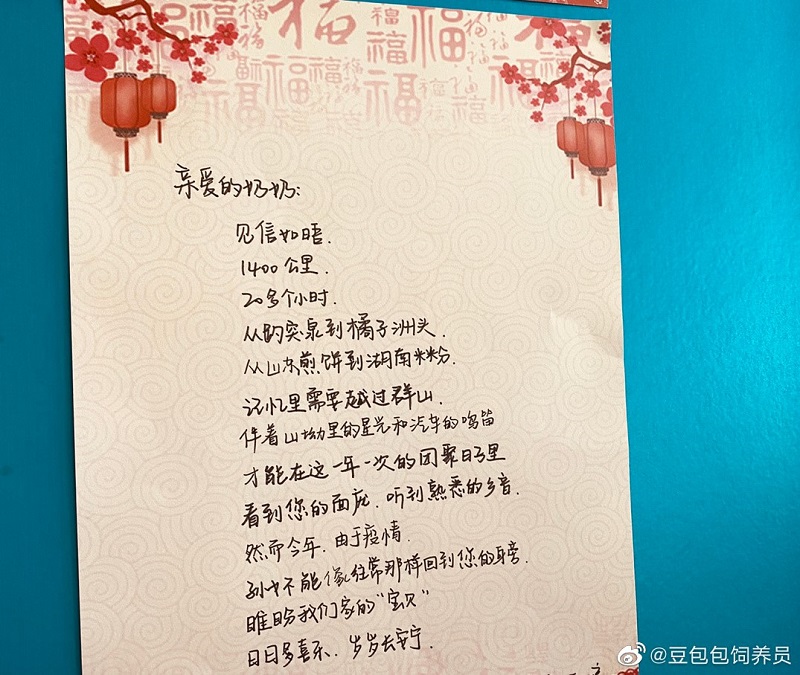 亲爱的奶奶:
见信如晤.
1400公里.
20多个小时.
从趵突泉到橘子洲头.
从山东煎饼到湖南米粉.
记忆里需要越过群山.
伴着山坳里的星光和汽车的鸣笛
才能在这一年一次的团聚日子里
看到您的面庞.听到熟悉的乡音.
然而今年.由于疫情.
孙女不能像往常那样回到您的身旁.
唯盼我们家的“宝贝”
日日多喜乐.岁岁长安宁.
@豆包包饲养员